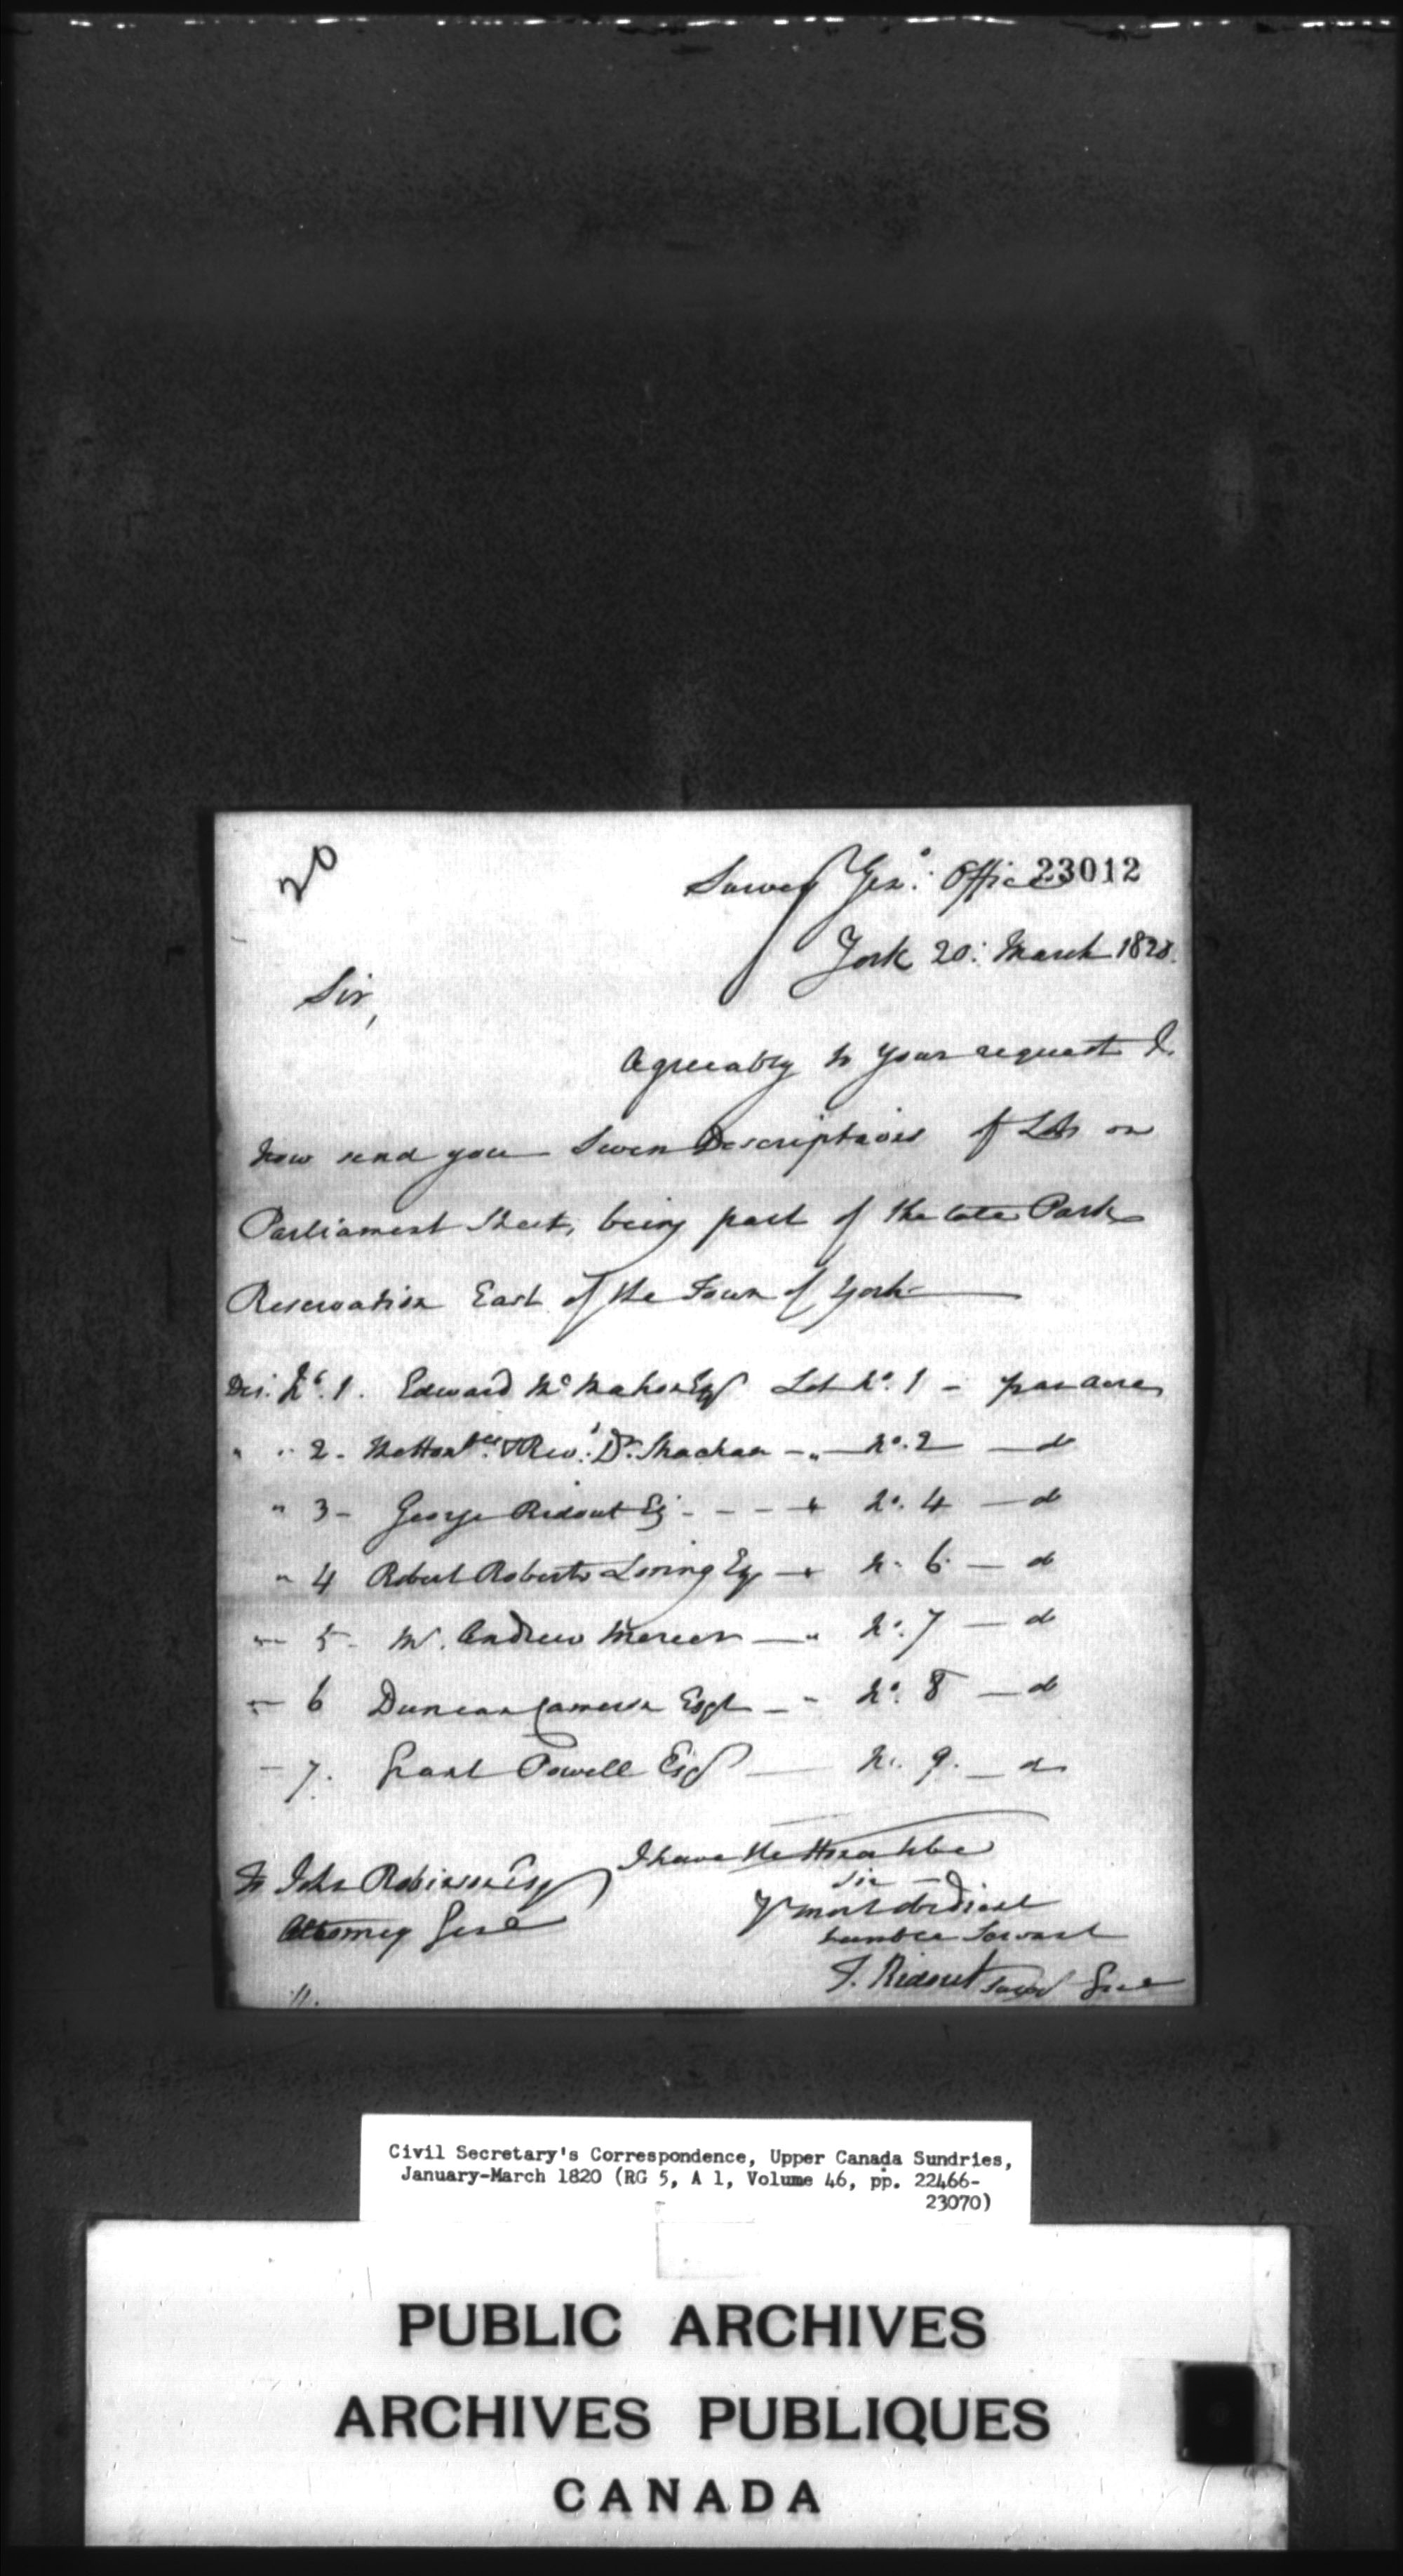 20
Survey Gen: Office 23012
York 20: March 1820.
Sir,
Agreeably to your request I
now send you Seven Descriptions of Lots on
Parliament Street, being part of the late Park
Reservation East of the Town of York
Des. No. 1. Edward McMahon Esqr Lot No. 1 -
" " 2. The Honble & Revd. Dr. Strachan - " - No. 2 - do
" 3 - George Ridout Esq - - - " No. 4 - do
" 4 Robert Roberts Loring Esq - " No. 6 - do
" 5 - Mr. Andrew Mercer - " No. 7 - do
" 6 Duncan Cameron Esqr - " No. 8 - do
" 7. Grant Powell Esqr - No. 9. - do
I have the Honor to be
To John Robinson Esqr Sir -
Attorney Genl Yr most obedient
humble Servant
T. Ridout Survr Genl
Civil Secretary's Correspondence, Upper Canada Sundries,
January-March 1820 (RG 5, A 1, Volume 46, pp. 22466-
23070)
PUBLIC ARCHIVES
ARCHIVES PUBLIQUES
CANADA